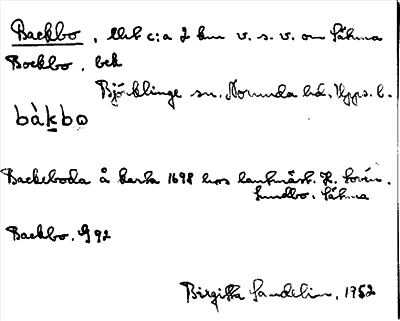 Backbo, c:a 2 km v. s. v. om Såhma
Backbo, bek
Björklinge sn, Norunda hd, Upps. l.
bàkbo
Backeboda å karta 1698 hos lantmät. H. Lovén,
Lundbo, Såhma
Backbo. G 92
Birgitta Sandelin, 1952